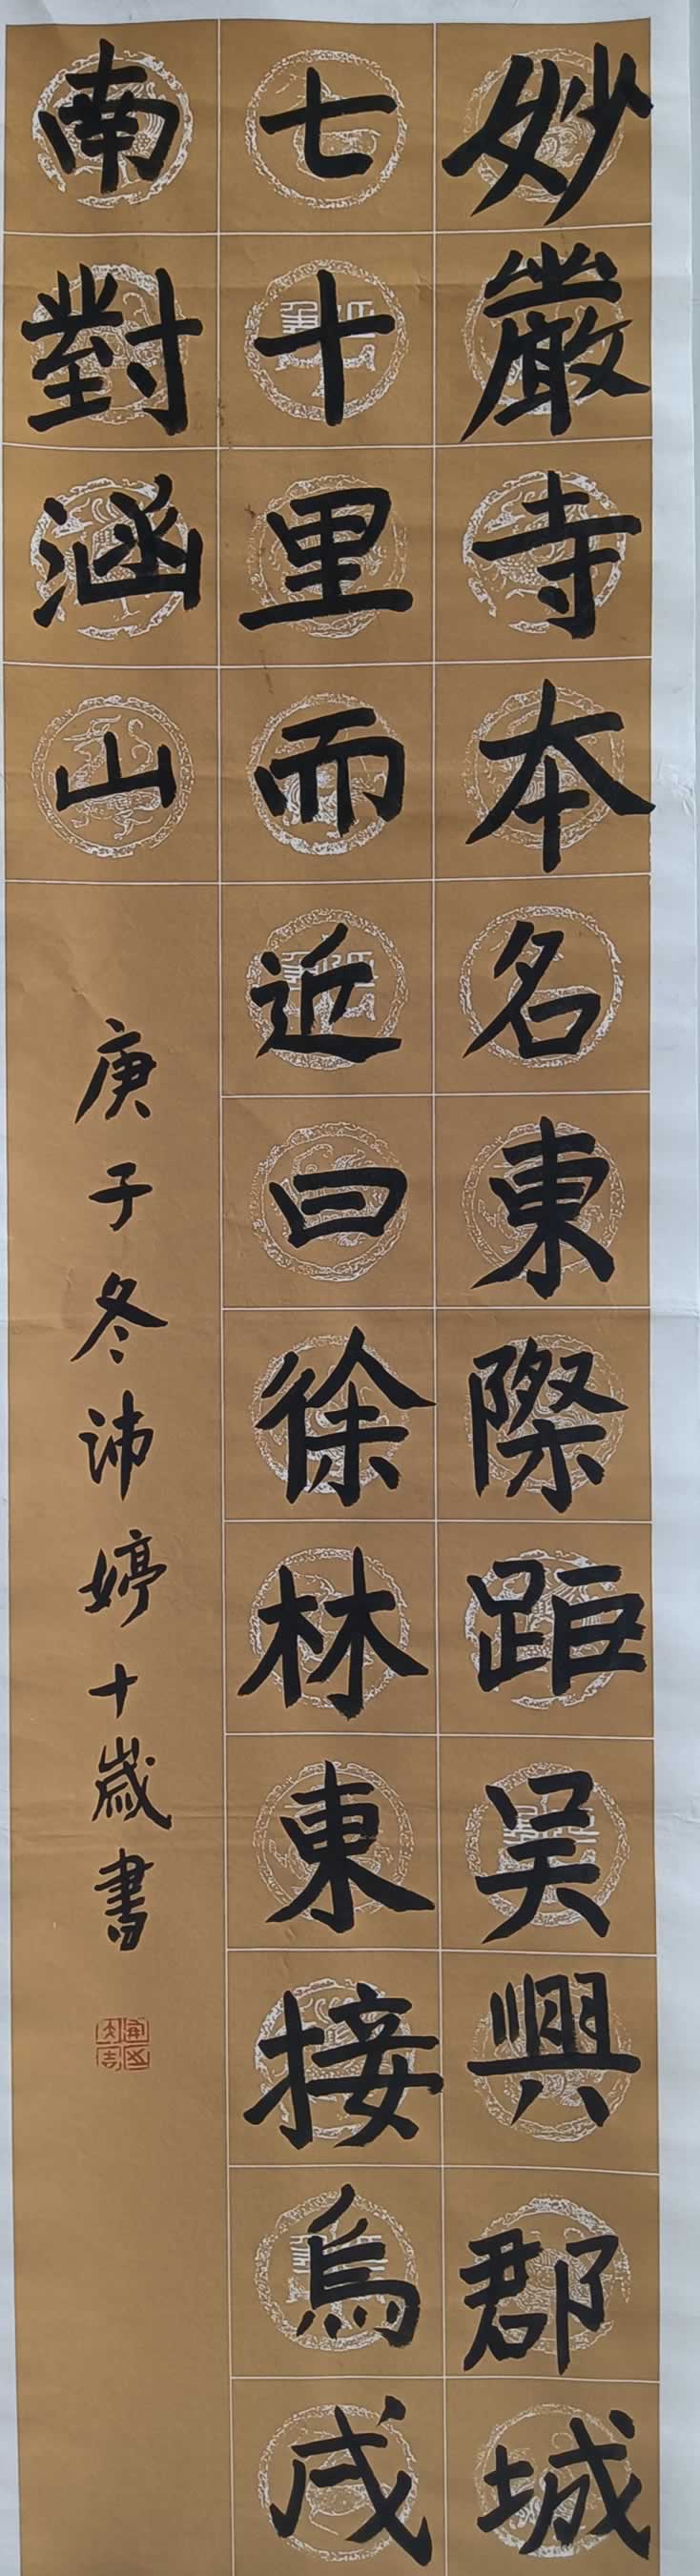 妙嚴寺本名東際距吴興郡城
七十里而近曰徐林東接烏戍
南對涵山
庚子冬沛婷十歲書